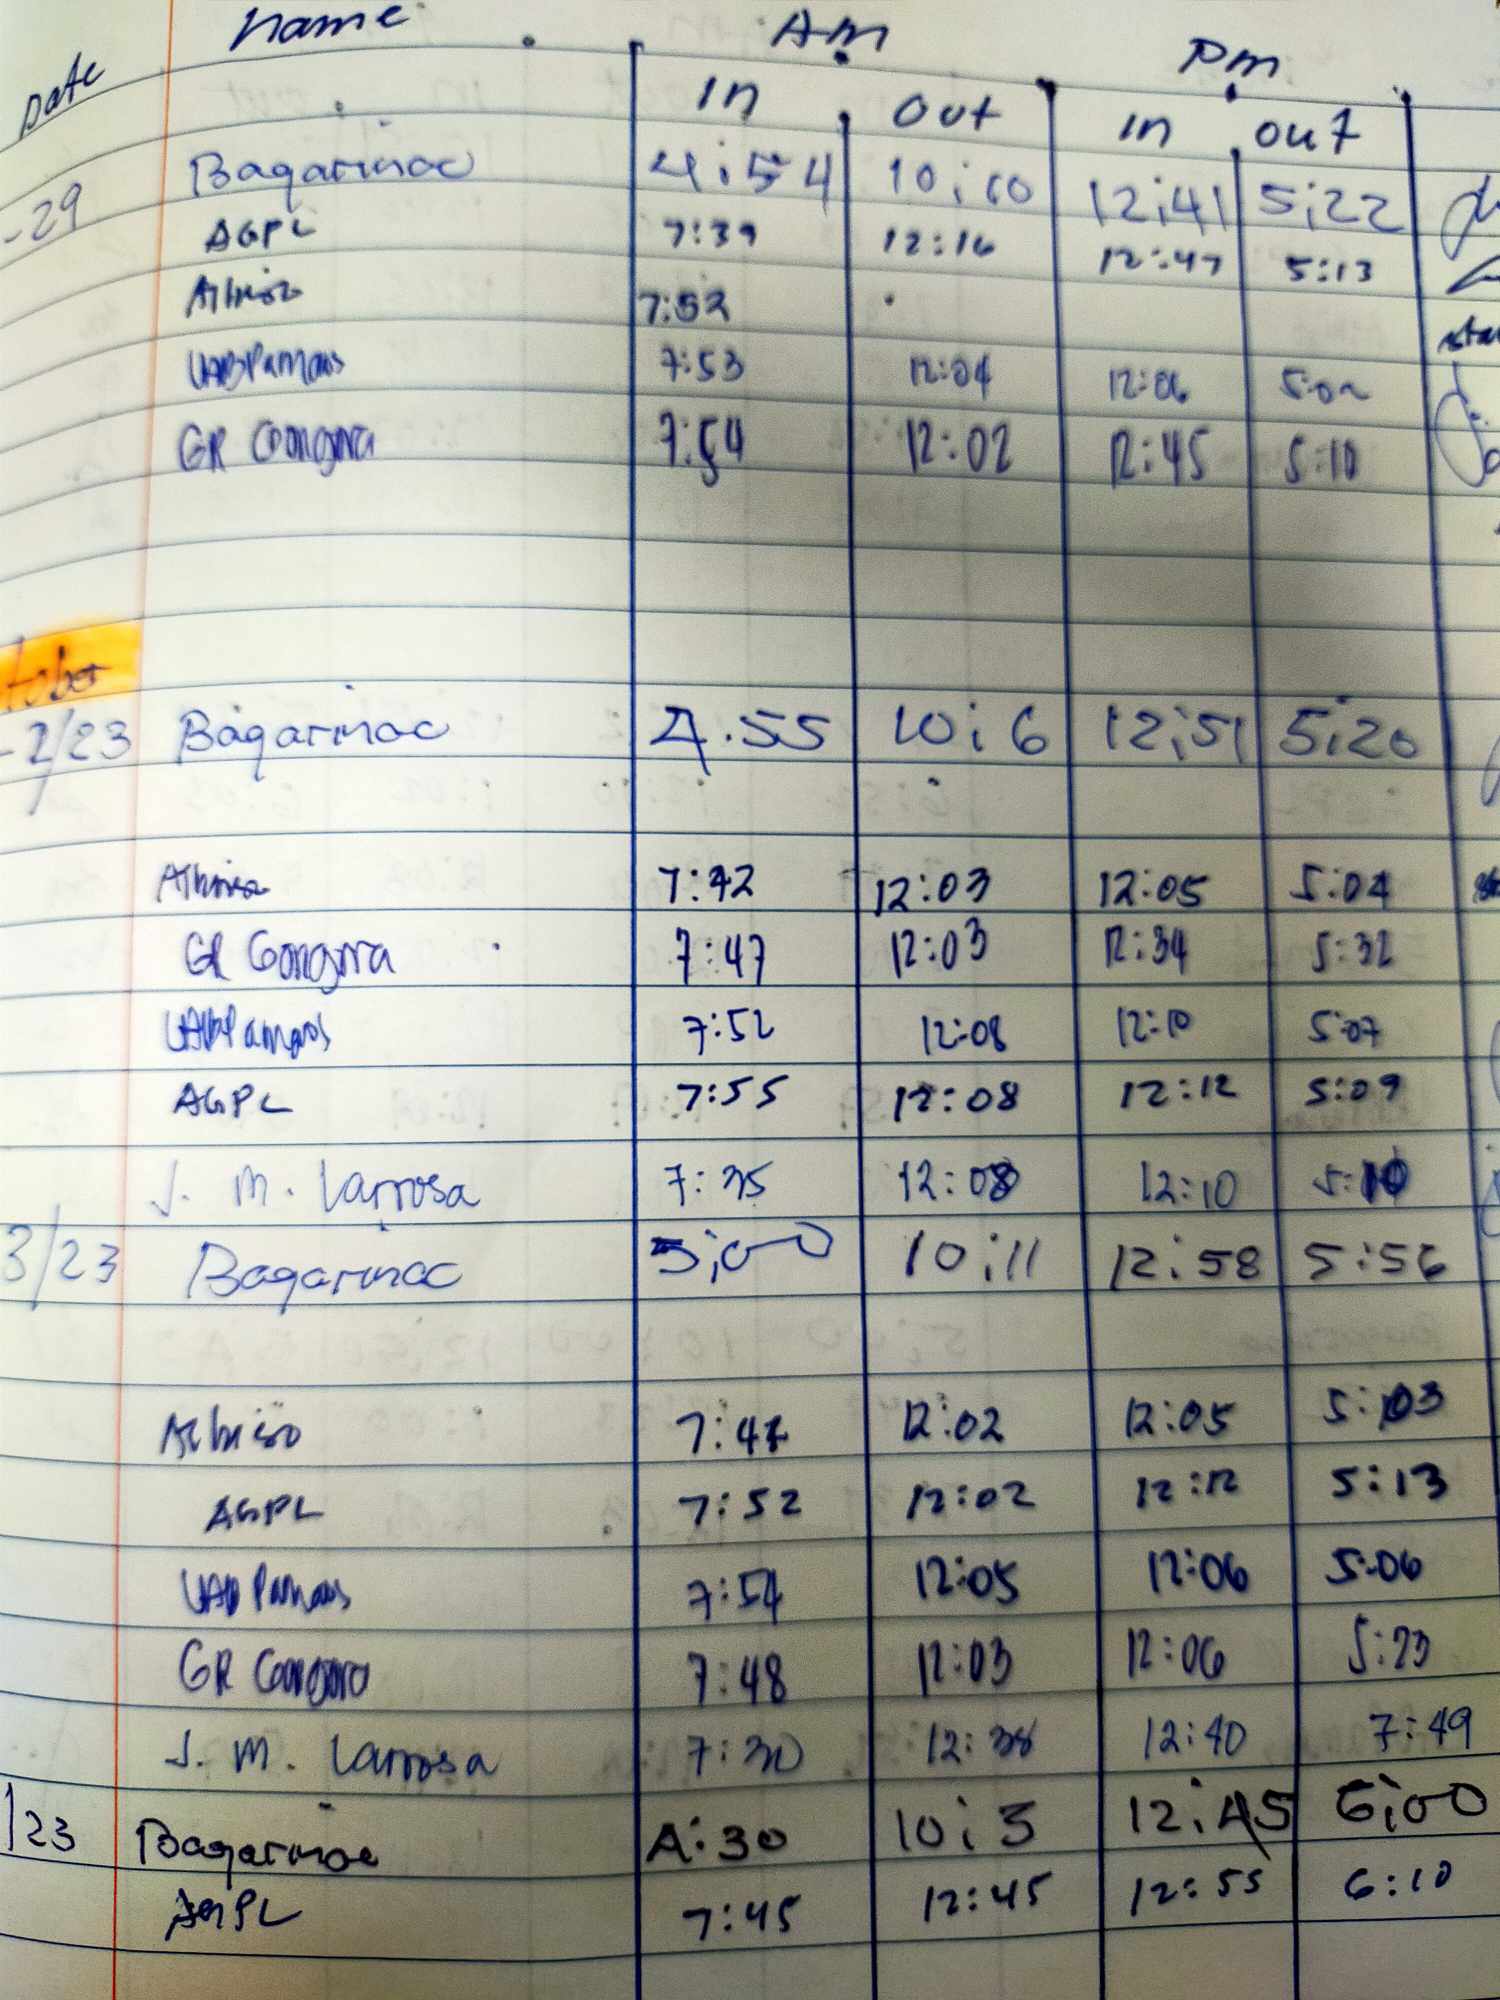 Date name Am Pm
In out In out
-29 Bagarinao 4:54 10:10 12:41 5:22
AGPL 7:39 12:16 12:47 5:13
7:52
7:53 12:04 12:06 5:02
GR Gongora 7:54 12:02 12:45 5:10
tober
-2/23 Bagarinao 4.55 10:6 12:51 5:20
7:42 12:03 12:05 5:04
GR Gongora 7:47 12:03 12:34 5:32
7:52 12:08 12:10 5:07
AGPL 7:55 12:08 12:12 5:09
J. M. Larrosa 7:35 12:08 12:10 5:10
3/23 Bagarinao 5:00 10:11 12:58 5:56
12:02 12:05 5:03
AGPL 7:52 12:02 12:12 5:13
7:54 12:05 12:06 5:06
GR Gongora 7:48 12:03 12:06 5:23
J. M. Larrosa 7:30 12:38 12:40 7:49
/23 Bagarinao 4:30 10:5 12:45 6:00
AGPL 7:45 12:45 12:55 6:10